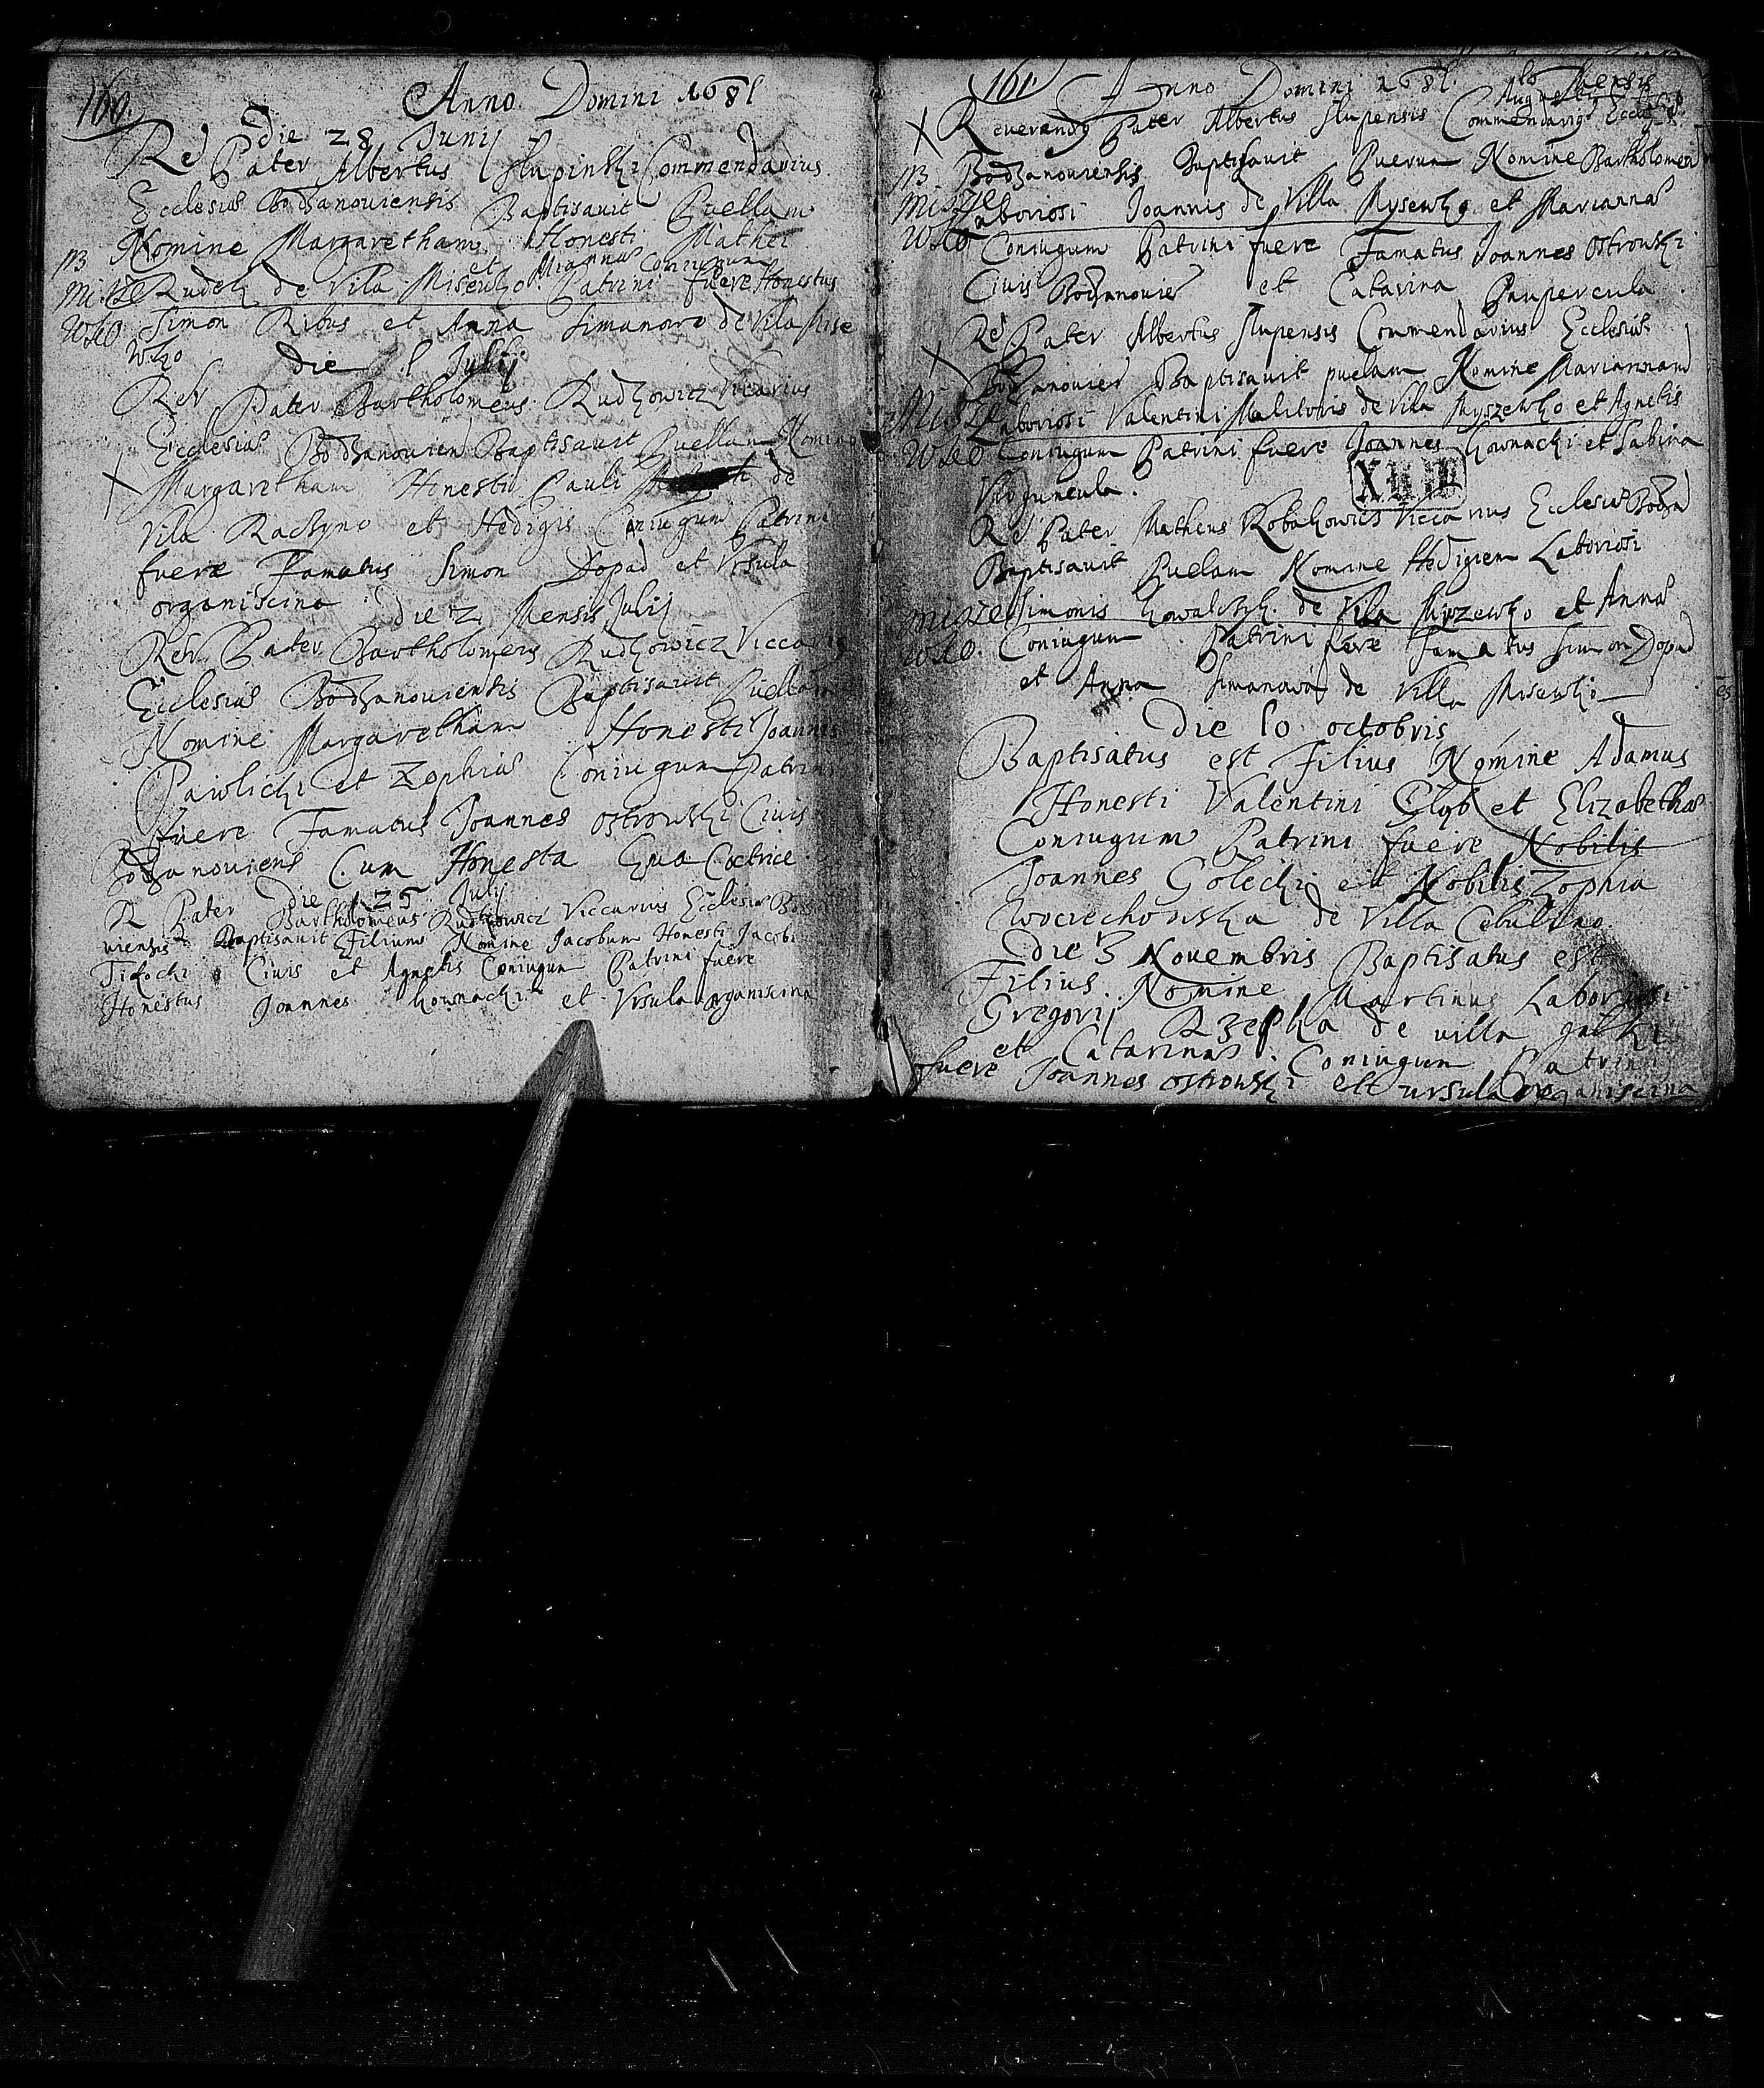 160.
Anno Domini 1681
Die 28 Junij
Red Pater Albertus Slupinski Commendarius
Ecclesiæ Bodzanouiensis Baptisauit Puellam
Nomine Margaretham Honesti Mathei
et Mariannæ Coniugum
Rudek de Vila Misewko Patrini fuere Honestus
Simon Ribus et Anna Simanowo de Vila Mise
wko
die 1 Julij
Rev Pater Bartholomeus Rudkowicz Vicarius
Ecclesiæ Bodzanouien Baptisauit Puellam Nomine
Margaretham Honesti Pauli de
Vila Raczyno et Hedigis Coniugum Patrini
fuere Famatus Simon Dopad et Vrsula
organiscina
die 2 Mensis Julij
Rev Pater Bartholomeus Rudkowicz Viccarius
Ecclesiæ Bodzanouiensis Baptisauit Puellam
Nomine Margaretham Honesti Joannis
Pawlicki et Zophiæ Coniugum Patrini
fuere Famatus Joannes Ostrowski Ciuis
Bodzanouiens Cum Honesta Eua Coctrice
Die 25 Julij
R Pater Bartholomeus Rudkowicz Viccarius Ecclesiæ Bod
uiensis Baptisauit Filium Nomine Jacobum Honesti Jacobi
Ciuis et Agnetis Coniugum Patrini fuere
Honestus Joannes Kownacki et Vrsula organiscina
161
Anno Domini 1681 Mensis
Augusti
Reuerendus Pater Albertus Slupensis Commendarius Ecclesiæ
Bodzanouiensis Baptisauit Puerum Nomine Bartholomeu
Laboriosi Joannis de Villa Mysewko et Mariannæ
Coniugum Patrini fuere Famatus Joannes Ostrowski
Ciuis Bodzanouien et Catarina Paupercula
Red Pater Albertus Slupensis Commendarius Ecclesiæ
Bodzanouien Baptisauit puelam Nomine Mariannam
Laboriosi Valentini Malitoris de Vila Myszewko et Agnetis
Coniugum Patrini fuere Joannes Kownacki et Sabina
Virguncula.
Red Pater Matheus Robakowicz Viccarius Ecclesiæ Bodza
Baptisauit Puelam Nomine Hedigiem Laboriosi
Simonis Kowalczyk de Vila Myszewko et Annæ
Coniugum Patrini fuere Famatus Simon Dopad
et Anna Simanowa de Villa Misewko
Die 10 octobris
Baptisatus est Filius Nomine Adamus
Honesti Valentini Glob et Elizabethæ
Coniugum Patrini fuere Nobilis
Joannes Golecki et Nobilis Zophia
Wociechowska de Villa Cibulino
die 3 Nouembris Baptisatus est
Filius Nomine Martinus Laboriosi
Gregorij Rzepka de uilla galki
et Catarinæ Coniugum Patrini
fuere Joannes Ostrowski et ursula Organiscina